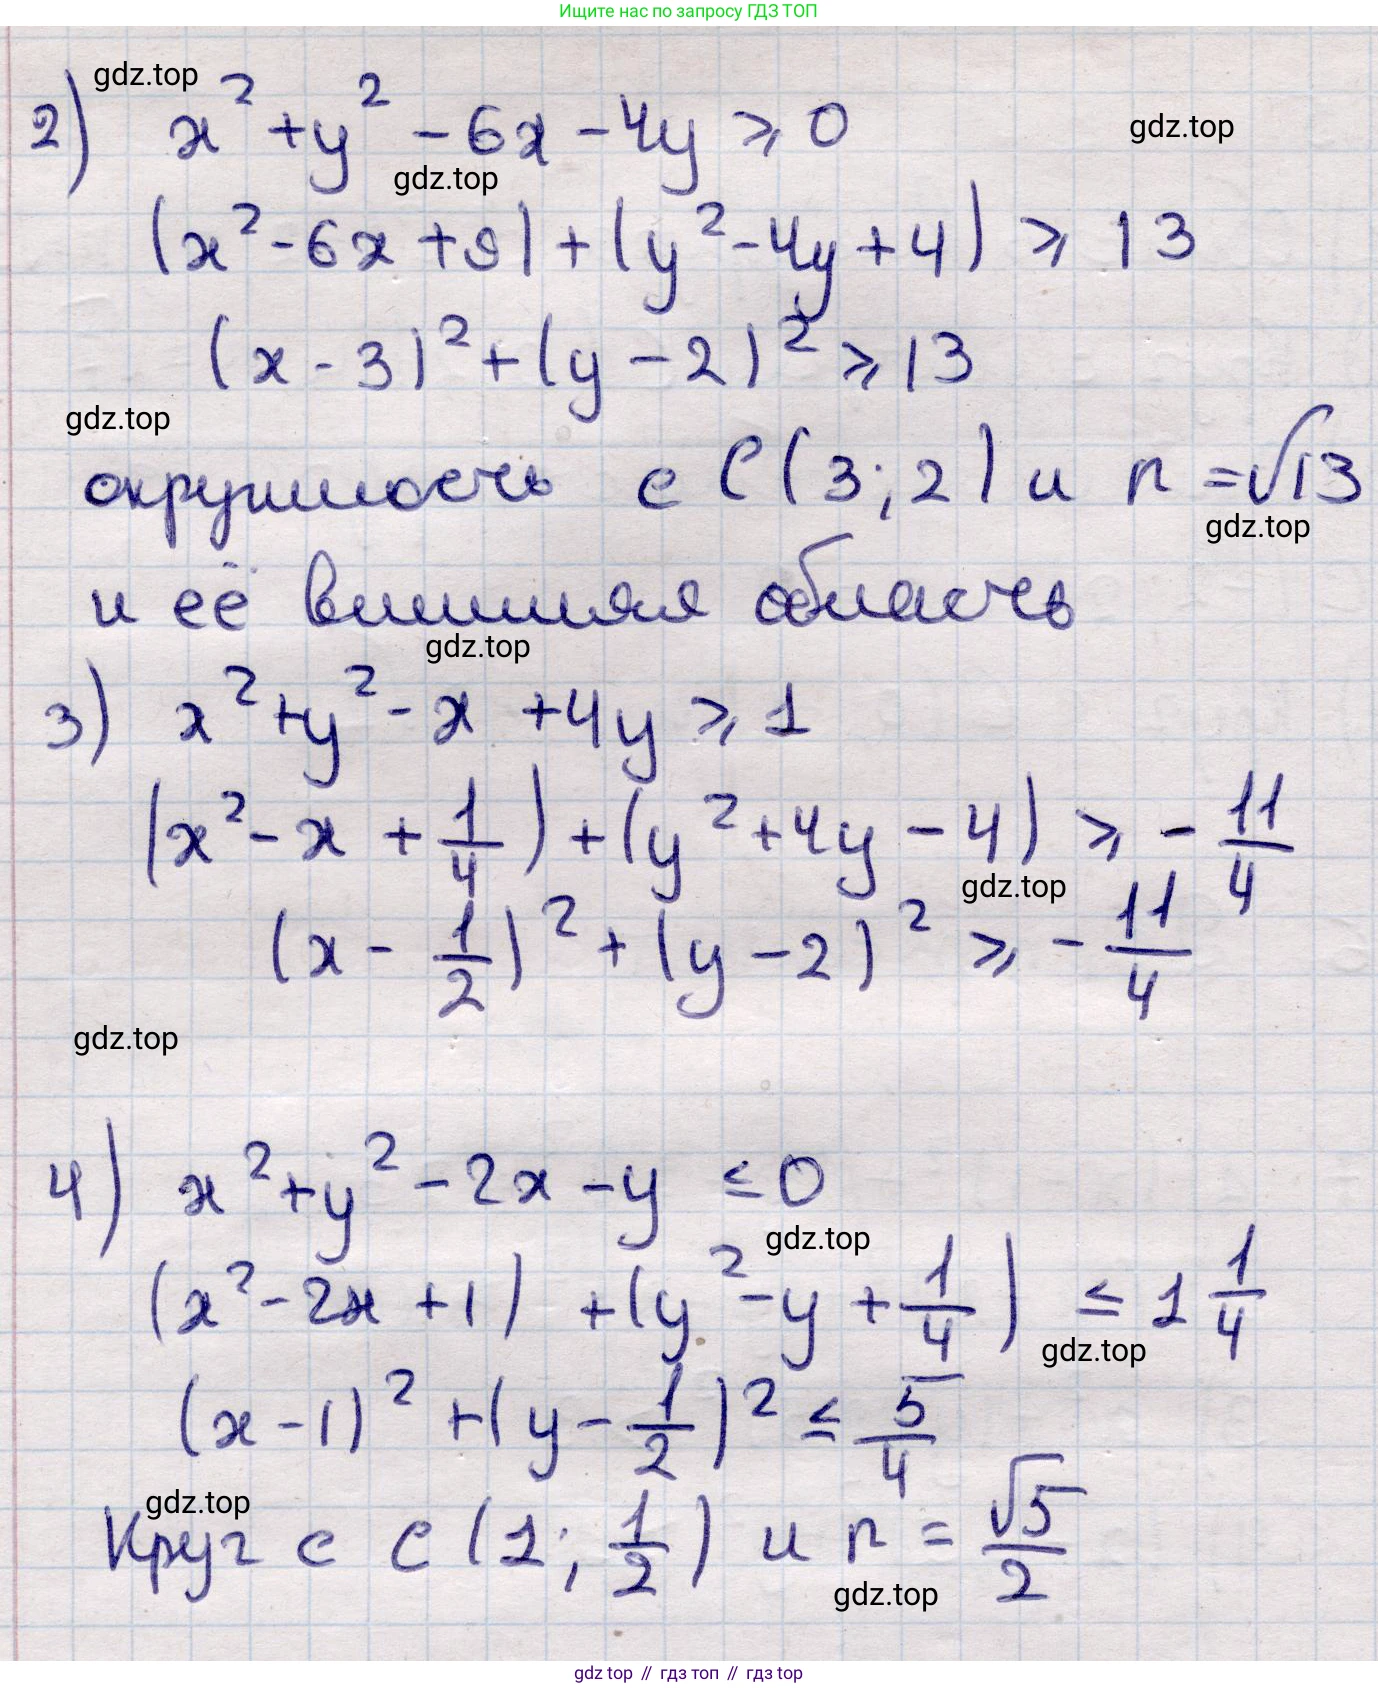 Ищите нас по запросу ГДЗ ТОП
gdz.top
2) x² + y² - 6x - 4y ⩾ 0
gdz.top
gdz.top
(x² - 6x + 9) + (y² - 4y + 4) ⩾ 13
(x - 3)² + (y - 2)² ⩾ 13
gdz.top
окружность с C(3; 2) и r = √13
gdz.top
и её внешняя область
gdz.top
3) x² + y² - x + 4y ⩾ 1
(x² - x + 1/4) + (y² + 4y - 4) ⩾ - 11/4
gdz.top
(x - 1/2)² + (y - 2)² ⩾ - 11/4
gdz.top
4) x² + y² - 2x - y ≤ 0
gdz.top
(x² - 2x + 1) + (y² - y + 1/4) ≤ 1 1/4
gdz.top
(x - 1)² + (y - 1/2)² ≤ 5/4
gdz.top
Круг с C(1; 1/2) и r = √5/2
gdz.top
gdz top // гдз топ // gdz top